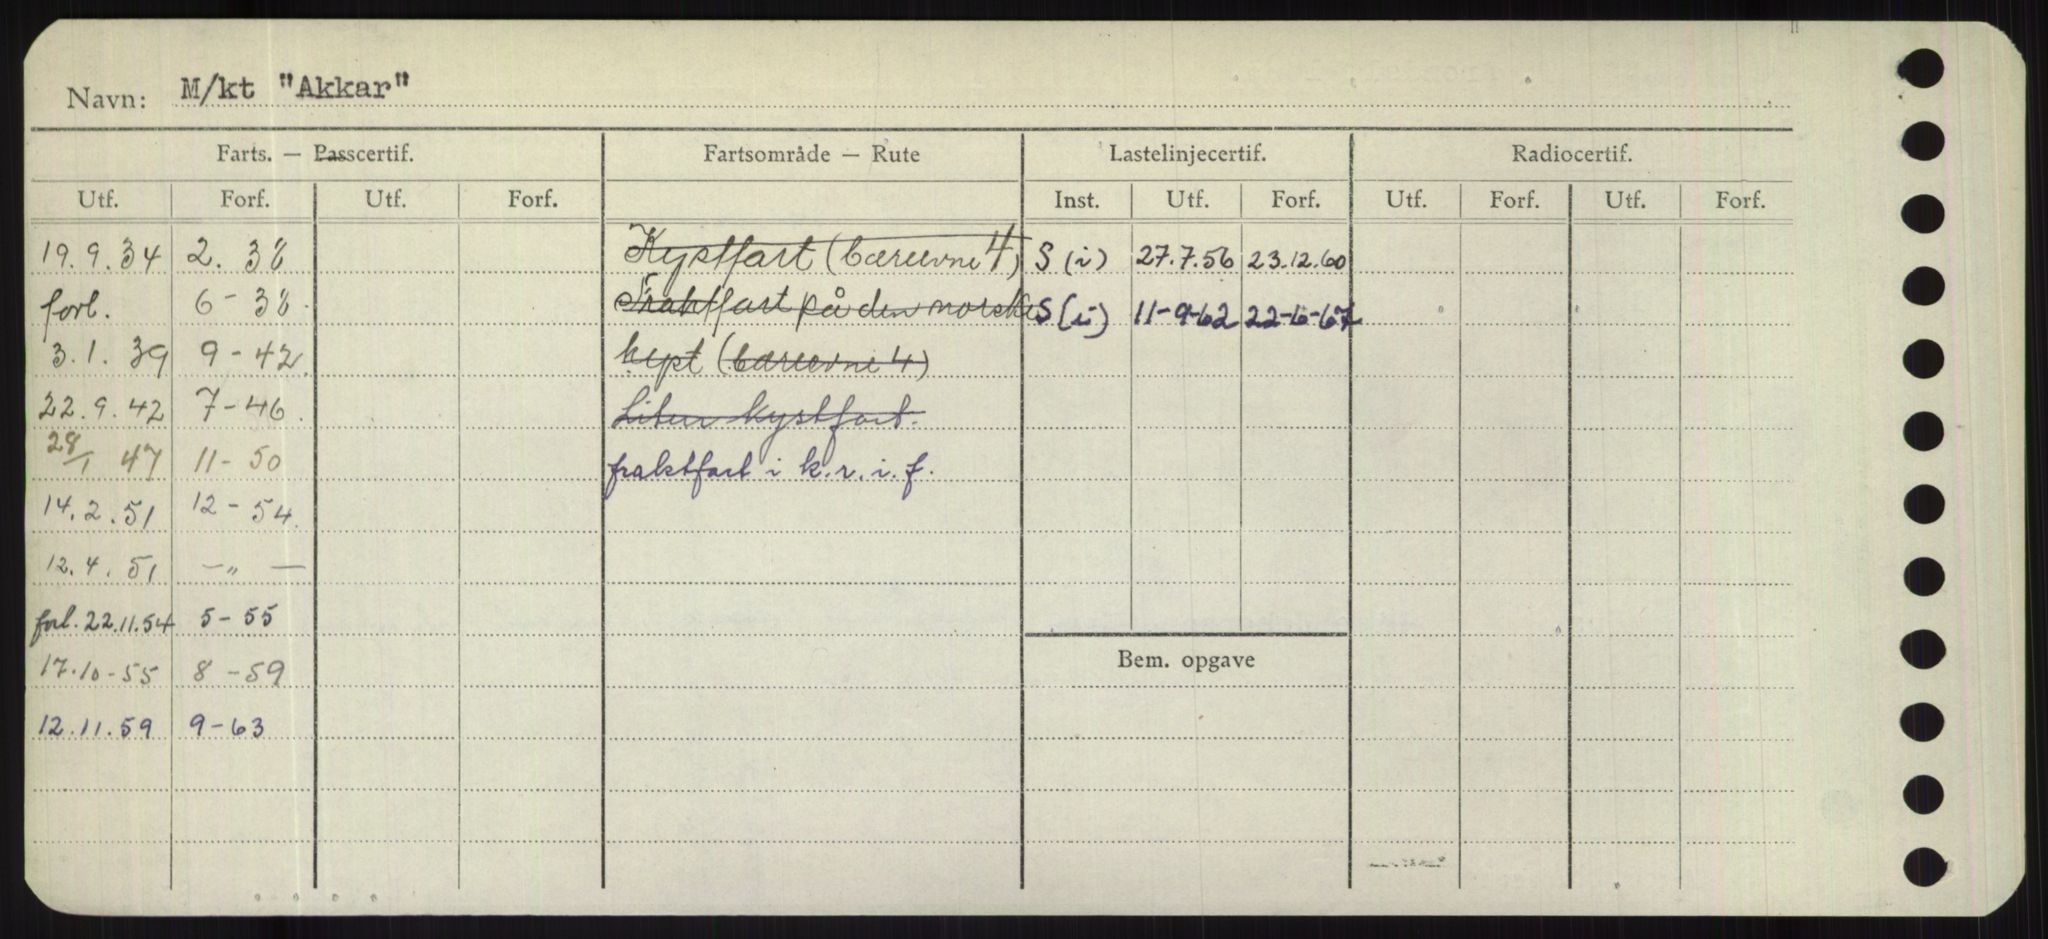 Navn: M/kt "Akkar"
Farts. — Passcertif. Fartsområde — Rute Lastelinjecertif. Radiocertif.
Utf. Forf. Utf. Forf. Inst. Utf. Forf. Utf. Forf. Utf. Forf.
19.9.34 2. 38 Kystfart (bæreevne 4) S (i) 27.7.56 23.12.60
forl. 6-38. Fraktfart på den norske S (i) 11-9-62 22-6-67
3.1.39 9-42. kyst (bæreevne 4)
22.9.42 7-46. Liten kystfart.
28/1 47 11-50 fraktfart i k.r.i.f.
14.2.51 12-54.
12.4.51 —"—
forl. 22.11.54 5-55
17.10-55 8-59 Bem. opgave
12.11.59 9-63